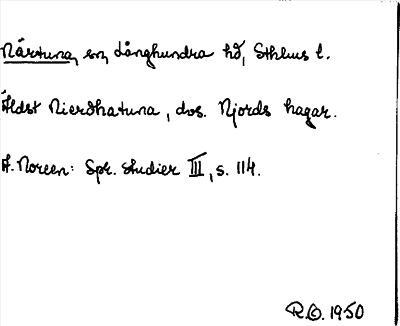 Närtuna, sn, Långhundra hd, Sthlms l.
Äldst Nierdhatuna, dvs. Njords hagar.
A. Noreen: Spr. studier III, s. 114.
R.O. 1950